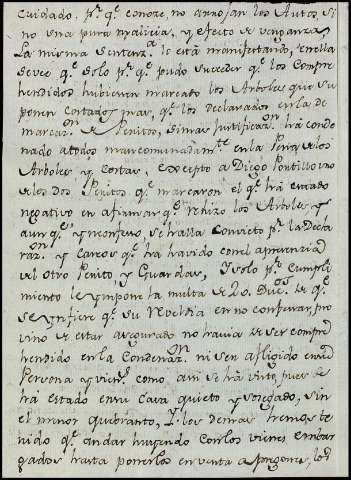 cuidado, p.r q.e conoze, no arrojan los Autos, si
no una pura malicia, y efecto de venganza,
La misma Sentenz.a lo està manifestando, en ella
se vee q.e solo p.r q.e pudo suceder q.e los Compre
hendidos hubiesen marcado los Arboles que su
ponen cortados mas, q.e los declarados en la de
marcaz.on de Peritos, sin mas justificaz.on ha conde
nado a todos mancomunadam.te en la
Arboles y Cortas, excepto a Diego Pontillo uno
de los dos Peritos q.e marcaron el q.e ha estado
negativo en afirmar q.e se hizo los Arboles y
aun q.e y no confeso, se halla Convicto p.r la Decla
raz.on y Careos q.e ha havido con el
del otro Perito, y Guardas, y solo p.r Cumpli
miento le ympone la multa de 20. Duc.s de q.e
se ynfiere q.e su Reveldia en no confesar, pro
vino de estar asegurado no havia de ser compre
hendido en la Condenaz.on ni ser afligido en su
Persona y vien.s como asi se ha visto, pues se
ha estado en su Casa quieto y sosegado, sin
el menor quebranto, y los demas hemos te
nido q.e andar huyendo con los vienes embar
gados hasta ponerlos en venta a pregones, los